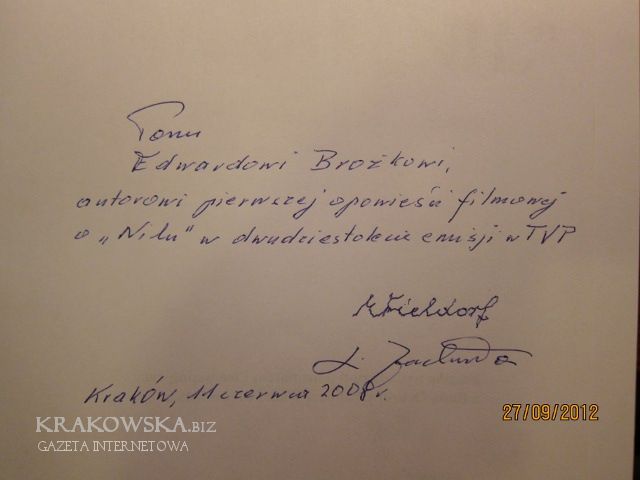 Panu
Edwardowi Brożkowi,
autorowi pierwszej opowieści filmowej
o „Nilu" w dwudziestolecie emisji w TVP
M Fieldorf
L. Zachuta
Kraków, 11 czerwca 2008 r.
KRAKOWSKA.BIZ
GAZETA INTERNETOWA
27/09/2012